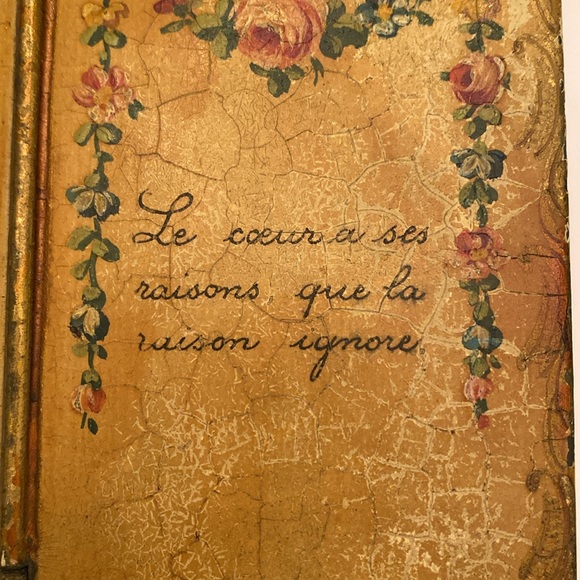 Le cœur a ses
raisons, que la
raison ignore.